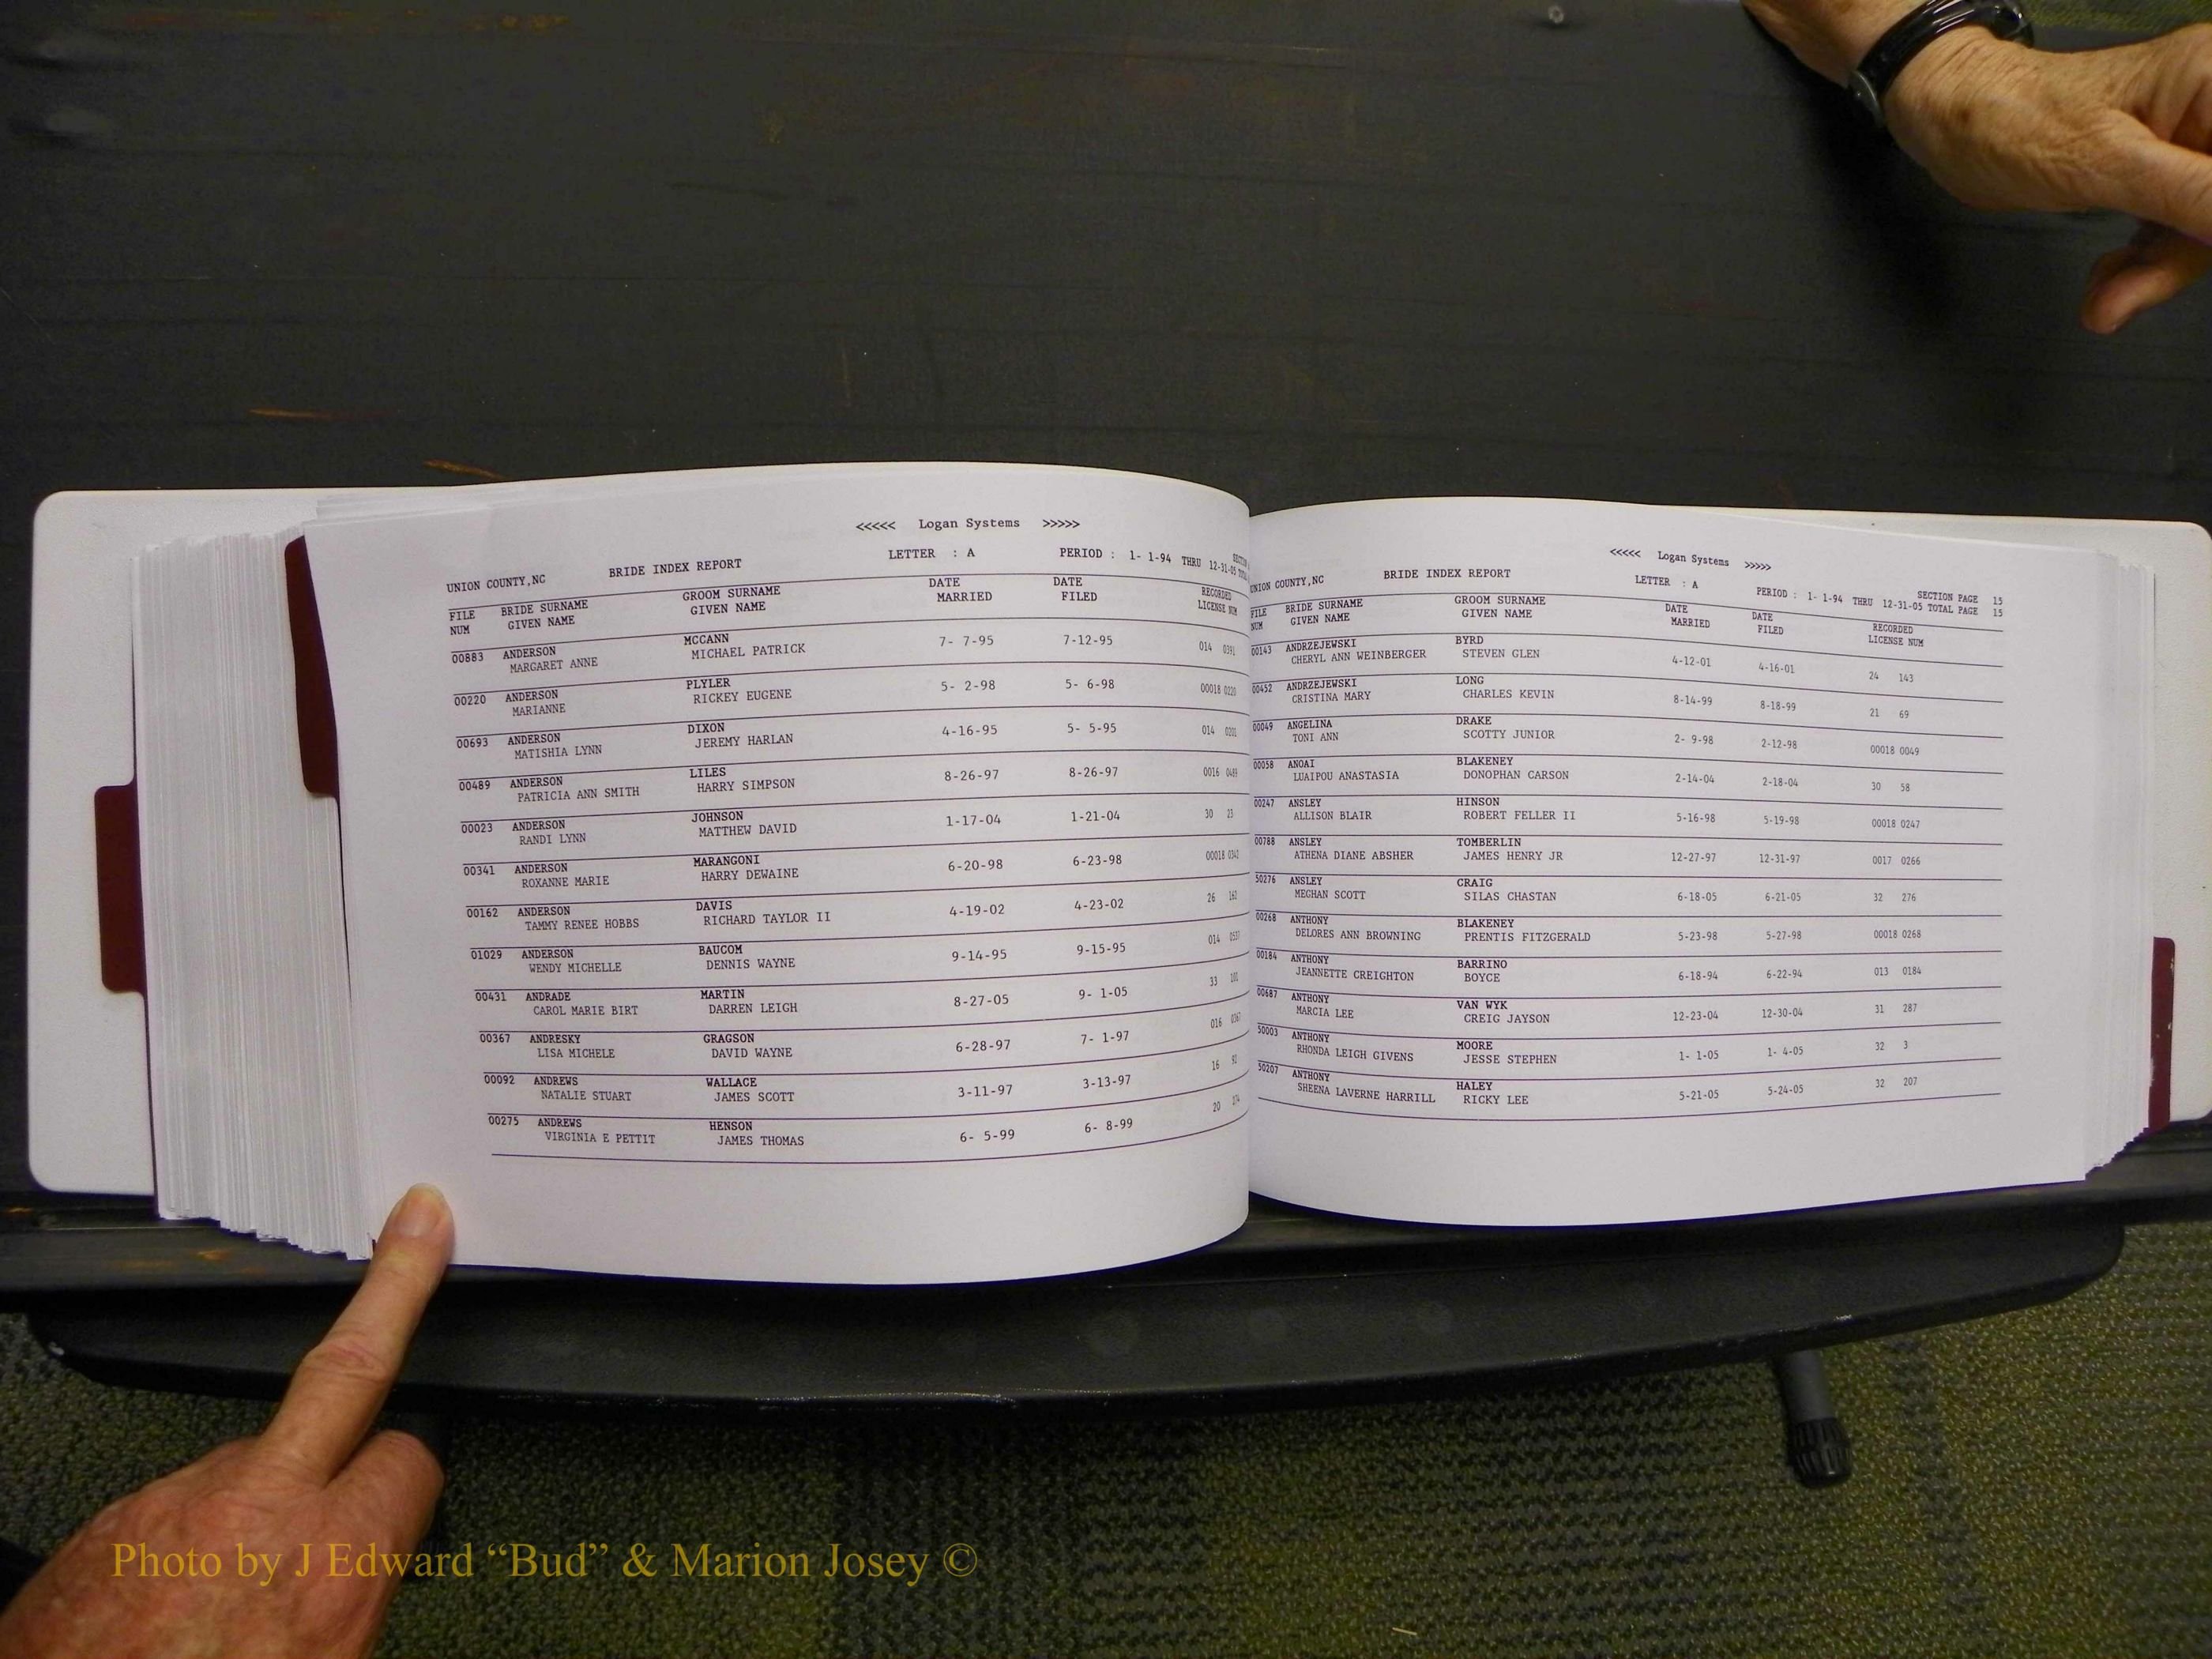 <<<<< Logan Systems >>>>>
UNION COUNTY,NC BRIDE INDEX REPORT LETTER : A PERIOD : 1- 1-94 THRU 12-31-05
FILE BRIDE SURNAME GROOM SURNAME DATE DATE RECORDED
NUM GIVEN NAME GIVEN NAME MARRIED FILED LICENSE NUM
00883 ANDERSON MCCANN 7- 7-95 7-12-95 014 0391
MARGARET ANNE MICHAEL PATRICK
00220 ANDERSON PLYLER 5- 2-98 5- 6-98 00018 0220
MARIANNE RICKEY EUGENE
00693 ANDERSON DIXON 4-16-95 5- 5-95 014 0201
MATISHIA LYNN JEREMY HARLAN
00489 ANDERSON LILES 8-26-97 8-26-97 0016 0489
PATRICIA ANN SMITH HARRY SIMPSON
00023 ANDERSON JOHNSON 1-17-04 1-21-04 30 23
RANDI LYNN MATTHEW DAVID
00341 ANDERSON MARANGONI 6-20-98 6-23-98 00018
ROXANNE MARIE HARRY DEWAINE
00162 ANDERSON DAVIS 4-19-02 4-23-02 26 162
TAMMY RENEE HOBBS RICHARD TAYLOR II
01029 ANDERSON BAUCOM 9-14-95 9-15-95 014
WENDY MICHELLE DENNIS WAYNE
00431 ANDRADE MARTIN 8-27-05 9- 1-05 33
CAROL MARIE BIRT DARREN LEIGH
00367 ANDRESKY GRAGSON 6-28-97 7- 1-97 016 0367
LISA MICHELE DAVID WAYNE
00092 ANDREWS WALLACE 3-11-97 3-13-97 16 92
NATALIE STUART JAMES SCOTT
00275 ANDREWS HENSON 6- 5-99 6- 8-99 20
VIRGINIA E PETTIT JAMES THOMAS
<<<<< Logan Systems >>>>>
SECTION PAGE 15
UNION COUNTY,NC BRIDE INDEX REPORT LETTER : A PERIOD : 1- 1-94 THRU 12-31-05 TOTAL PAGE 15
FILE BRIDE SURNAME GROOM SURNAME DATE DATE RECORDED
NUM GIVEN NAME GIVEN NAME MARRIED FILED LICENSE NUM
00143 ANDRZEJEWSKI BYRD 4-12-01 4-16-01 24 143
CHERYL ANN WEINBERGER STEVEN GLEN
00452 ANDRZEJEWSKI LONG 8-14-99 8-18-99 21 69
CRISTINA MARY CHARLES KEVIN
00049 ANGELINA DRAKE 2- 9-98 2-12-98 00018 0049
TONI ANN SCOTTY JUNIOR
00058 ANOAI BLAKENEY 2-14-04 2-18-04 30 58
LUAIPOU ANASTASIA DONOPHAN CARSON
00247 ANSLEY HINSON 5-16-98 5-19-98 00018 0247
ALLISON BLAIR ROBERT FELLER II
00788 ANSLEY TOMBERLIN 12-27-97 12-31-97 0017 0266
ATHENA DIANE ABSHER JAMES HENRY JR
50276 ANSLEY CRAIG 6-18-05 6-21-05 32 276
MEGHAN SCOTT SILAS CHASTAN
00268 ANTHONY BLAKENEY 5-23-98 5-27-98 00018 0268
DELORES ANN BROWNING PRENTIS FITZGERALD
00184 ANTHONY BARRINO 6-18-94 6-22-94 013 0184
JEANNETTE CREIGHTON BOYCE
00687 ANTHONY VAN WYK 12-23-04 12-30-04 31 287
MARCIA LEE CREIG JAYSON
50003 ANTHONY MOORE 1- 1-05 1- 4-05 32 3
RHONDA LEIGH GIVENS JESSE STEPHEN
50207 ANTHONY HALEY 5-21-05 5-24-05 32 207
SHEENA LAVERNE HARRILL RICKY LEE
Photo by J Edward “Bud” & Marion Josey ©